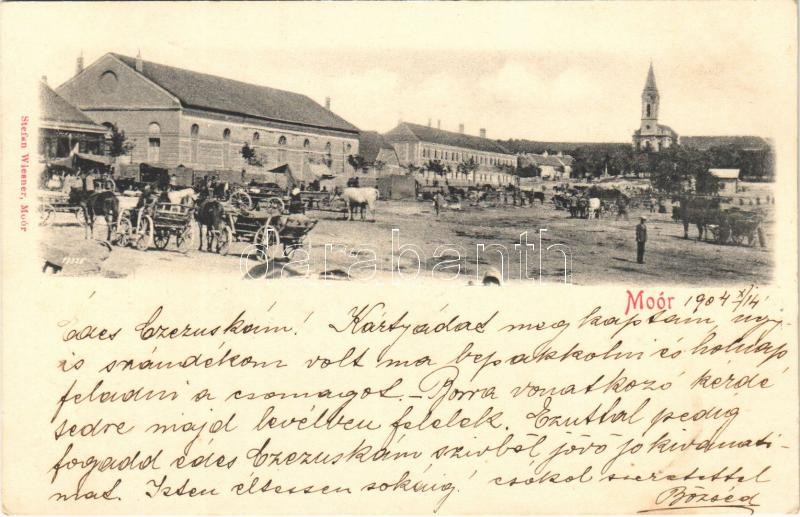 Stefan Wiesner, Moór
darabanth
Moór 1904 X/14
Édes Czezuskám! Kártyádat megkaptam, úgy
is szándékom volt ma bepakkolni és holnap
feladni a csomagot. – Borra vonatkozó kérdé
sedre majd levélben felelek. Ezuttal pedig
fogadd édes Czezuskám szivből jövő jokivánati-
mat. Isten éltessen sokáig! csókol szeretettel
Bözséd